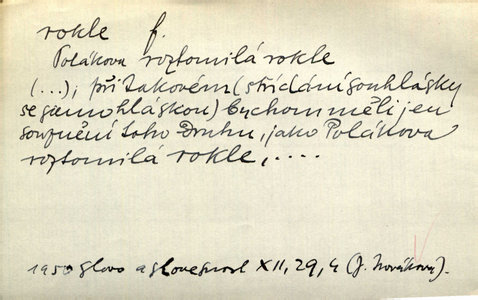 rokle f.
Polákova roztomilá rokle
(...), při takovém (střídání souhlásky
se samohláskou) bychom měli jen
souznění toho druhu, jako Polákova
roztomilá rokle, ....
1950 Slovo a slovesnost XII, 29, 4 (J. Nováková).